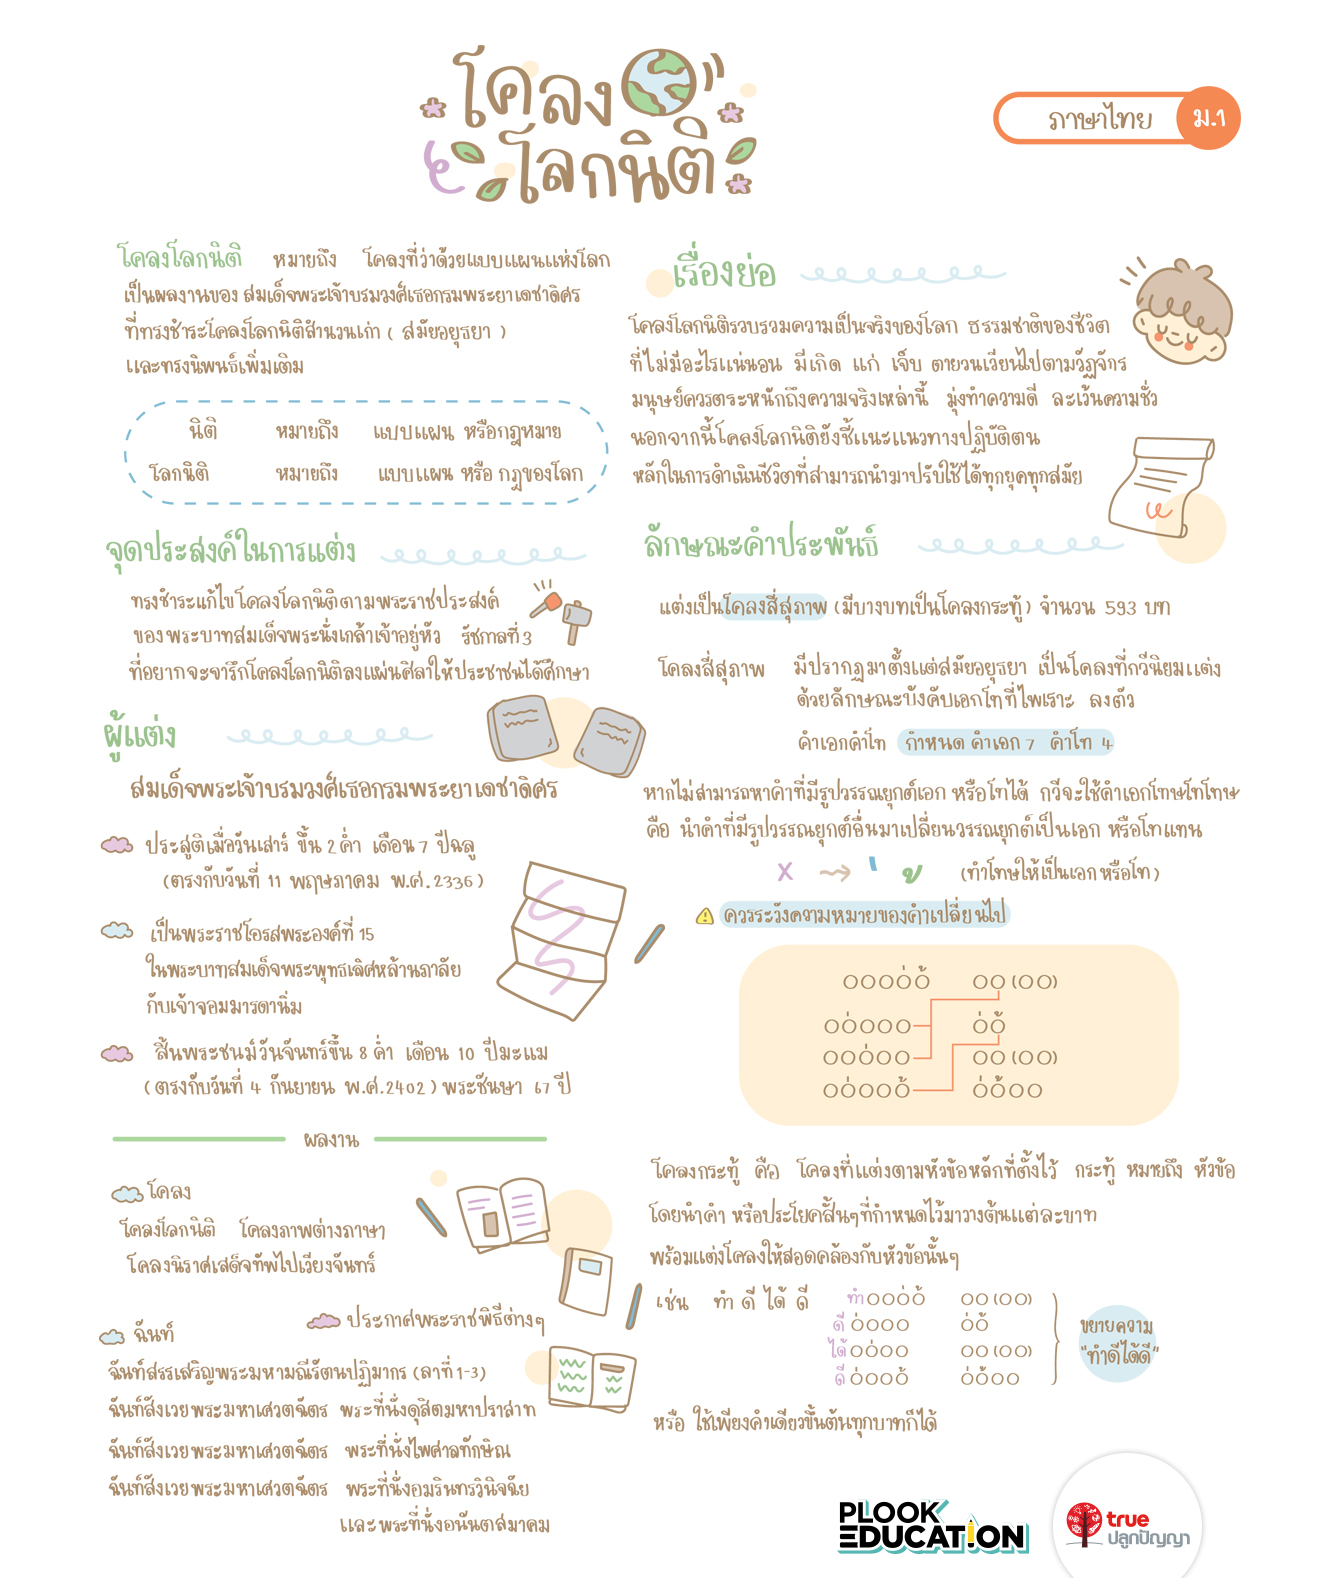 โคลง
โลกนิติ
ภาษาไทย ม.1
โคลงโลกนิติ หมายถึง โคลงที่ว่าด้วยแบบแผนแห่งโลก
เป็นผลงานของ สมเด็จพระเจ้าบรมวงศ์เธอกรมพระยาเดชาดิศร
ที่ทรงชำระโคลงโลกนิติสำนวนเก่า ( สมัยอยุธยา )
และทรงนิพนธ์เพิ่มเติม
นิติ หมายถึง แบบแผน หรือกฎหมาย
โลกนิติ หมายถึง แบบแผน หรือ กฎของโลก
จุดประสงค์ในการแต่ง
ทรงชำระแก้ไขโคลงโลกนิติตามพระราชประสงค์
ของพระบาทสมเด็จพระนั่งเกล้าเจ้าอยู่หัว รัชกาลที่ 3
ที่อยากจะจารึกโคลงโลกนิติลงแผ่นศิลาให้ประชาชนได้ศึกษา
ผู้แต่ง
สมเด็จพระเจ้าบรมวงศ์เธอกรมพระยาเดชาดิศร
ประสูติเมื่อวันเสาร์ ขึ้น 2 ค่ำ เดือน 7 ปีฉลู
(ตรงกับวันที่ 11 พฤษภาคม พ.ศ.2336)
เป็นพระราชโอรสพระองค์ที่ 15
ในพระบาทสมเด็จพระพุทธเลิศหล้านภาลัย
กับเจ้าจอมมารดานิ่ม
สิ้นพระชนม์วันจันทร์ขึ้น 8 ค่ำ เดือน 10 ปีมะแม
(ตรงกับวันที่ 4 กันยายน พ.ศ.2402) พระชันษา 67 ปี
ผลงาน
โคลง
โคลงโลกนิติ โคลงภาพต่างภาษา
โคลงนิราศเสด็จทัพไปเวียงจันทร์
ประกาศพระราชพิธีต่างๆ
ฉันท์
ฉันท์สรรเสริญพระมหามณีรัตนปฏิมากร (ลาที่ 1-3)
ฉันท์สังเวยพระมหาเศวตฉัตร พระที่นั่งดุสิตมหาปราสาท
ฉันท์สังเวยพระมหาเศวตฉัตร พระที่นั่งไพศาลทักษิณ
ฉันท์สังเวยพระมหาเศวตฉัตร พระที่นั่งอมรินทรวินิจฉัย
และพระที่นั่งอนันตสมาคม
เรื่องย่อ
โคลงโลกนิติรวบรวมความเป็นจริงของโลก ธรรมชาติของชีวิต
ที่ไม่มีอะไรแน่นอน มีเกิด แก่ เจ็บ ตายวนเวียนไปตามวัฏจักร
มนุษย์ควรตระหนักถึงความจริงเหล่านี้ มุ่งทำความดี ละเว้นความชั่ว
นอกจากนี้โคลงโลกนิติยังชี้แนะแนวทางปฏิบัติตน
หลักในการดำเนินชีวิตที่สามารถนำมาปรับใช้ได้ทุกยุคทุกสมัย
ลักษณะคำประพันธ์
แต่งเป็นโคลงสี่สุภาพ (มีบางบทเป็นโคลงกระทู้) จำนวน 593 บท
โคลงสี่สุภาพ มีปรากฏมาตั้งแต่สมัยอยุธยา เป็นโคลงที่กวีนิยมแต่ง
ด้วยลักษณะบังคับเอกโทที่ไพเราะ ลงตัว
คำเอกคำโท กำหนด คำเอก 7 คำโท 4
หากไม่สามารถหาคำที่มีรูปวรรณยุกต์เอก หรือโทได้ กวีจะใช้คำเอกโทษโทโทษ
คือ นำคำที่มีรูปวรรณยุกต์อื่นมาเปลี่ยนวรรณยุกต์เป็นเอก หรือโทแทน
x → ่ ข้ (ทำโทษให้เป็นเอก หรือโท)
ควรระวังความหมายของคำเปลี่ยนไป
๐๐๐๐่๐้ ๐๐ (๐๐)
๐๐่๐๐๐ ๐่๐้
๐๐๐่๐๐ ๐๐ (๐๐)
๐๐่๐๐๐้ ๐่๐้๐๐
โคลงกระทู้ คือ โคลงที่แต่งตามหัวข้อหลักที่ตั้งไว้ กระทู้ หมายถึง หัวข้อ
โดยนำคำ หรือประโยคสั้นๆที่กำหนดไว้มาวางต้นแต่ละบาท
พร้อมแต่งโคลงให้สอดคล้องกับหัวข้อนั้นๆ
เช่น ทำ ดี ได้ ดี
ทำ๐๐๐่๐้ ๐๐ (๐๐)
ดี ๐่๐๐๐ ๐่๐้
ได้๐๐่๐๐ ๐๐ (๐๐)
ดี ๐่๐๐๐้ ๐่๐้๐๐
ขยายความ
"ทำดีได้ดี"
หรือ ใช้เพียงคำเดียวขึ้นต้นทุกบาทก็ได้
PLOOK
EDUCATION
true
ปลูกปัญญา